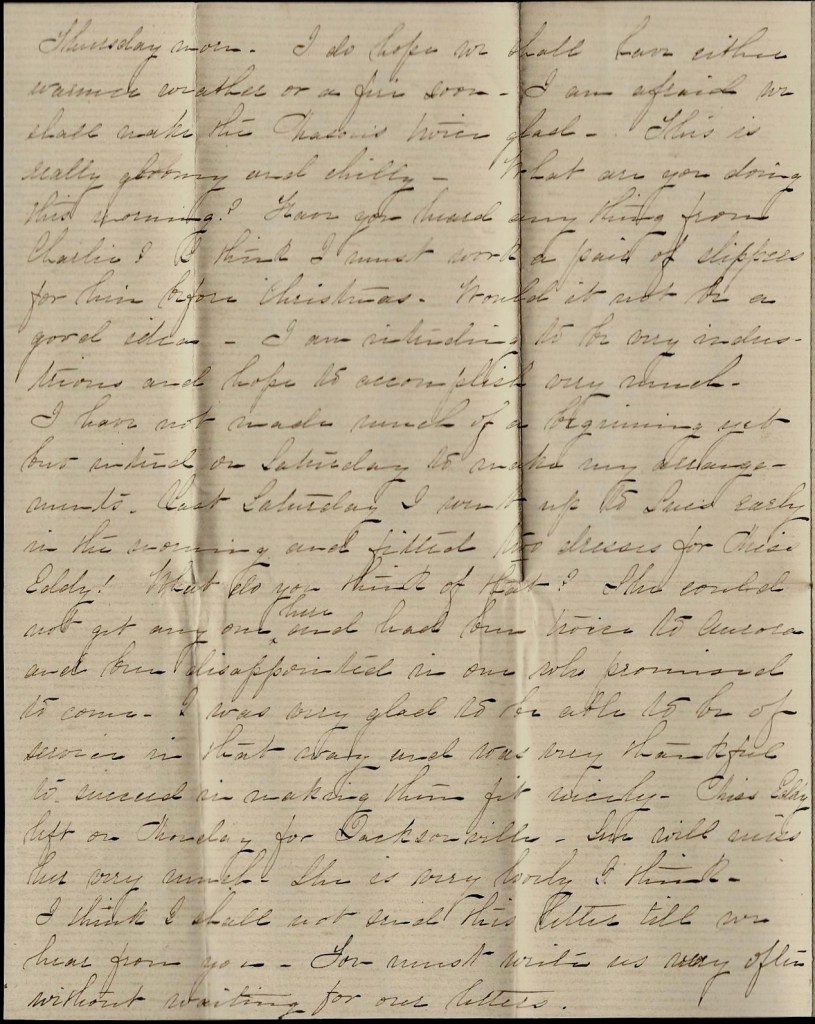 Thursday morn. I do hope we shall have either
warmer weather or a fire soon - I am afraid we
shall make the Masons twice glad - This is
really gloomy and chilly - What are you doing
this morning? Have you heard any thing from
Charlie? I think I must work a pair of slippers
for him before Christmas. Would it not be a
good idea - I am intending to be very indus-
trious and hope to accomplish very much -
I have not made much of a beginning yet
but intend on Saturday to make my arrange-
ments. Last Saturday I went up to Sues early
in the morning and fitted two dresses for Miss
Eddy! What do you think of that? She could
not get any one here and had been twice to Aurora
and been disappointed in one who promised
to come - I was very glad to be able to be of
service in that way and was very thankful
to succeed in making them fit nicely - Miss Eddy
left on Monday for Jacksonville - Sue will miss
her very much - She is very lovely I think -
I think I shall not send this letter till we
hear from you - You must write us very often
without waiting for our letters.